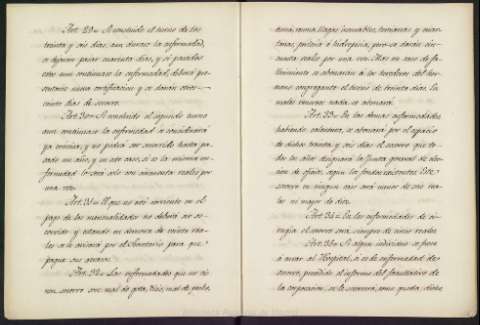 Art. 29= Al concluido el turno de los
treinta y seis dias, aun durase la enfermedad,
se dejarán pasar cuarenta dias, y si pasados
estos aun continuase la enfermedad, deberá pre-
sentarse nueva certificacion y se darán otros
veinte dias de socorro.
Art. 30= Al concluido el segundo turno
aun continuase la enfermedad se considerará
ya crónica, y no podrá ser socorrido hasta pa-
sado un año, y en este caso, si es la misma en-
fermedad lo será solo con cincuenta reales por
una vez.
Art. 31= El que no esté corriente en el
pago de las mensualidades no deberá ser so-
corrido y estando en descubierto de veinte rea-
les se le avisará por el Secretario para que
pague sus atrasos.
Art. 32= Las enfermedades que no tie-
nen socorro son: mal de gota, tisis, mal de piedra,
sarna, llagas incurables, tercianas y cuar-
tanas, perlesía é hidropesia, pero se darán cin-
cuenta reales por una vez. Mas en caso de fa-
llecimiento se abonarán á los herederos del her-
mano congregante el turno de treinta dias. De
males venereos nada se abonará.
Art. 33= En las demas enfermedades
habiendo calentura, se abonará por el espacio
de dichos treinta y seis dias el socorro que to-
dos los años designará la Junta general de elec-
cion de oficios, segun los fondos existentes. Este
socorro en ningun caso será menor de seis rea-
les ni mayor de diez.
Art. 34= En las enfermedades de ci-
rugia el socorro será siempre de cinco reales.
Art. 35= Si algun individuo se fuese
á curar al Hospital, si es de enfermedad de
socorro, precedido el informe del facultativo de
la corporacion, se le socorrerá, como queda dicho